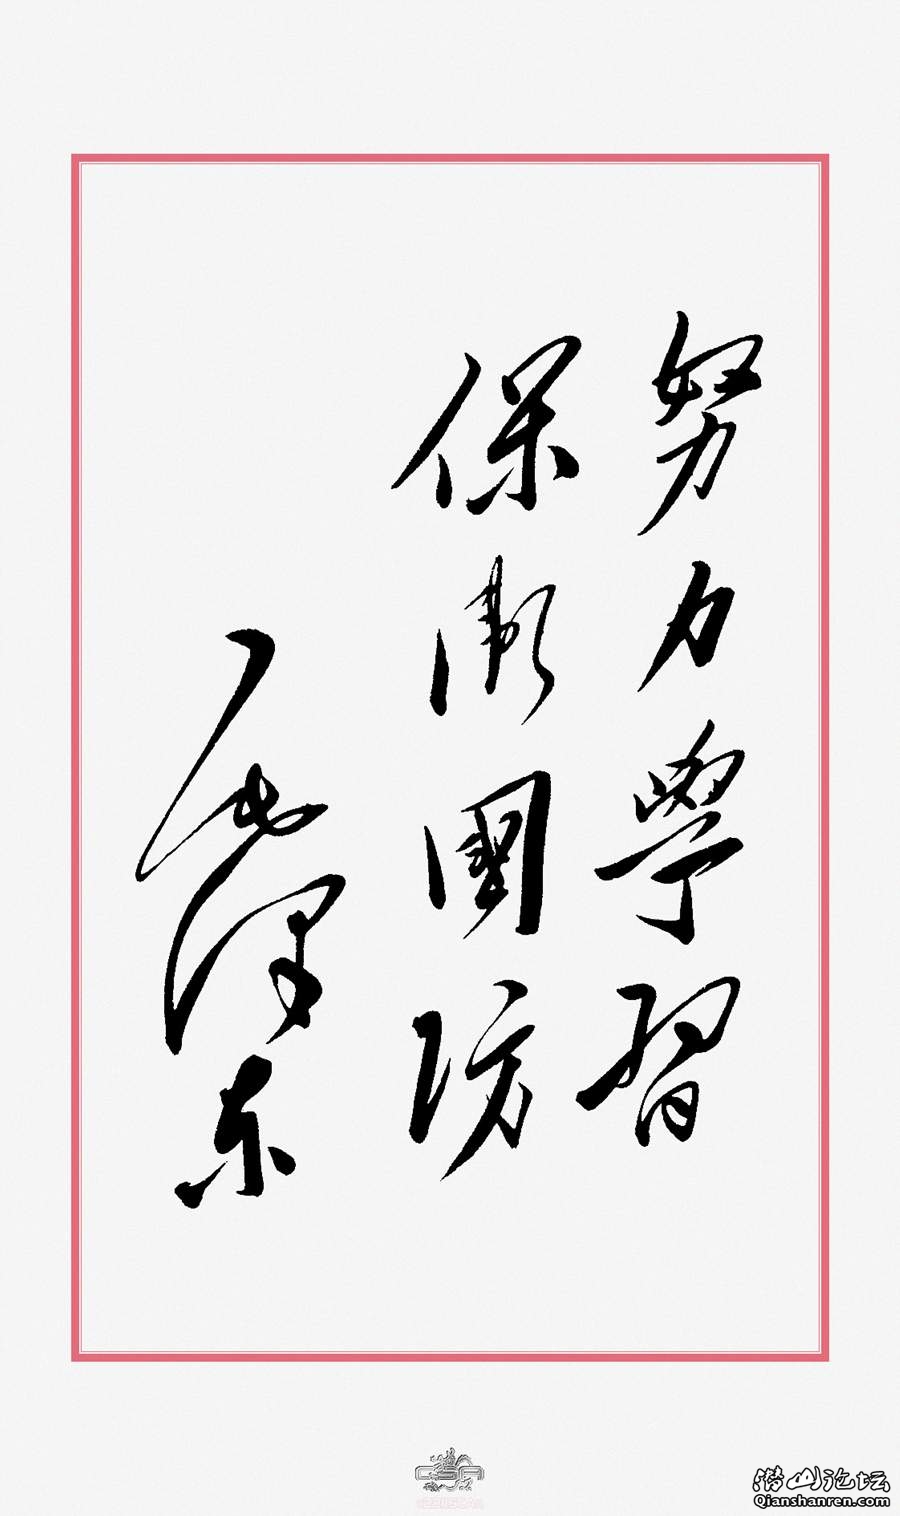 努力學習
保衛國防
毛澤东
潜山论坛
Qianshanren.com
CSA